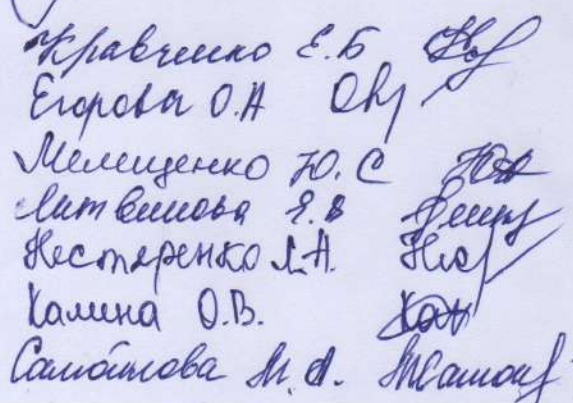 Кравченко Е.Б
Егорова О.А
Мелещенко Ю.С
Литвинова Е.В
Нестеренко Л.А.
Калина О.В.
Самойлова М.А.